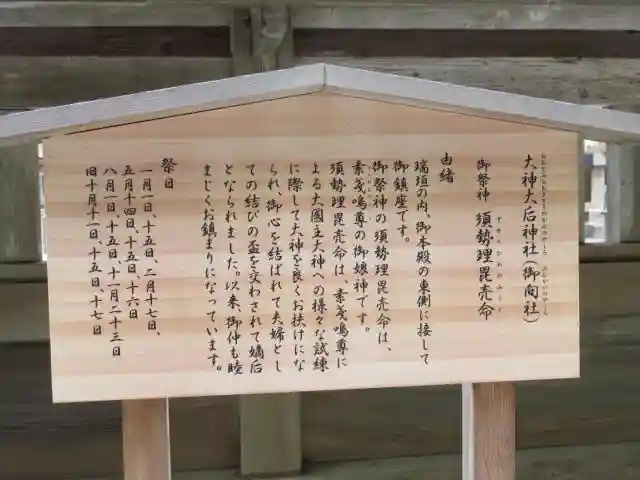 大神大后神社（御向社）
御祭神 須勢理毘売命
由緒
瑞垣の内、御本殿の東側に接して
御鎮座です。
御祭神の須勢理毘売命は、
素戔嗚尊の御娘神です。
須勢理毘売命は、素戔嗚尊に
よる大國主大神への様々な試練
に際して大神を良くお扶けにな
られ、御心を結ばれて夫婦とし
ての結びの盃を交わされて嫡后
となられました。以来、御仲も睦
まじくお鎮まりになっています。
祭日
一月一日、十五日、二月十七日、
五月十四日、十五日、十六日
八月一日、十五日、十一月二十三日
旧十月十一日、十五日、十七日